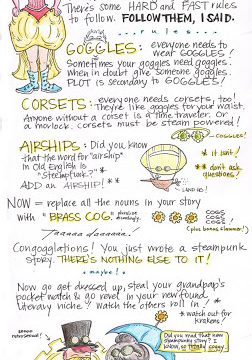 There's some HARD and FAST rules
to follow. FOLLOW THEM, I SAID.
...rules...
GOGGLES: everyone needs to
wear GOGGLES!
Sometimes your goggles need goggles.
When in doubt give someone goggles.
PLOT is secondary to GOGGLES!
CORSETS: everyone needs corsets, too!
They're like goggles for your waist.
Anyone without a corset is a time traveler. Or
a morlock. Corsets must be steam powered!
← GOGGLES!
AIRSHIPS: Did you know
that the word for "airship"
in Old English is
"Steampunk?" *
ADD an AIRSHIP! **
* it isn't!
** don't ask
questions!
LAND HO!
NOW = replace all the nouns in your story
with "BRASS COG."
COGS
COGS!
(plus bonus glamour!)
Taaaaa daaaaaa!
Congogglations! You just wrote a steampunk
story. THERE'S NOTHING ELSE TO IT!
*maybe!
Now go get dressed up, steal your grandpap's
pocket watch & go revel in your new found
Literary niche! Watch the others will in!
* watch out for
krakens!
Did you read that new
steampunk story? I
know, so totally